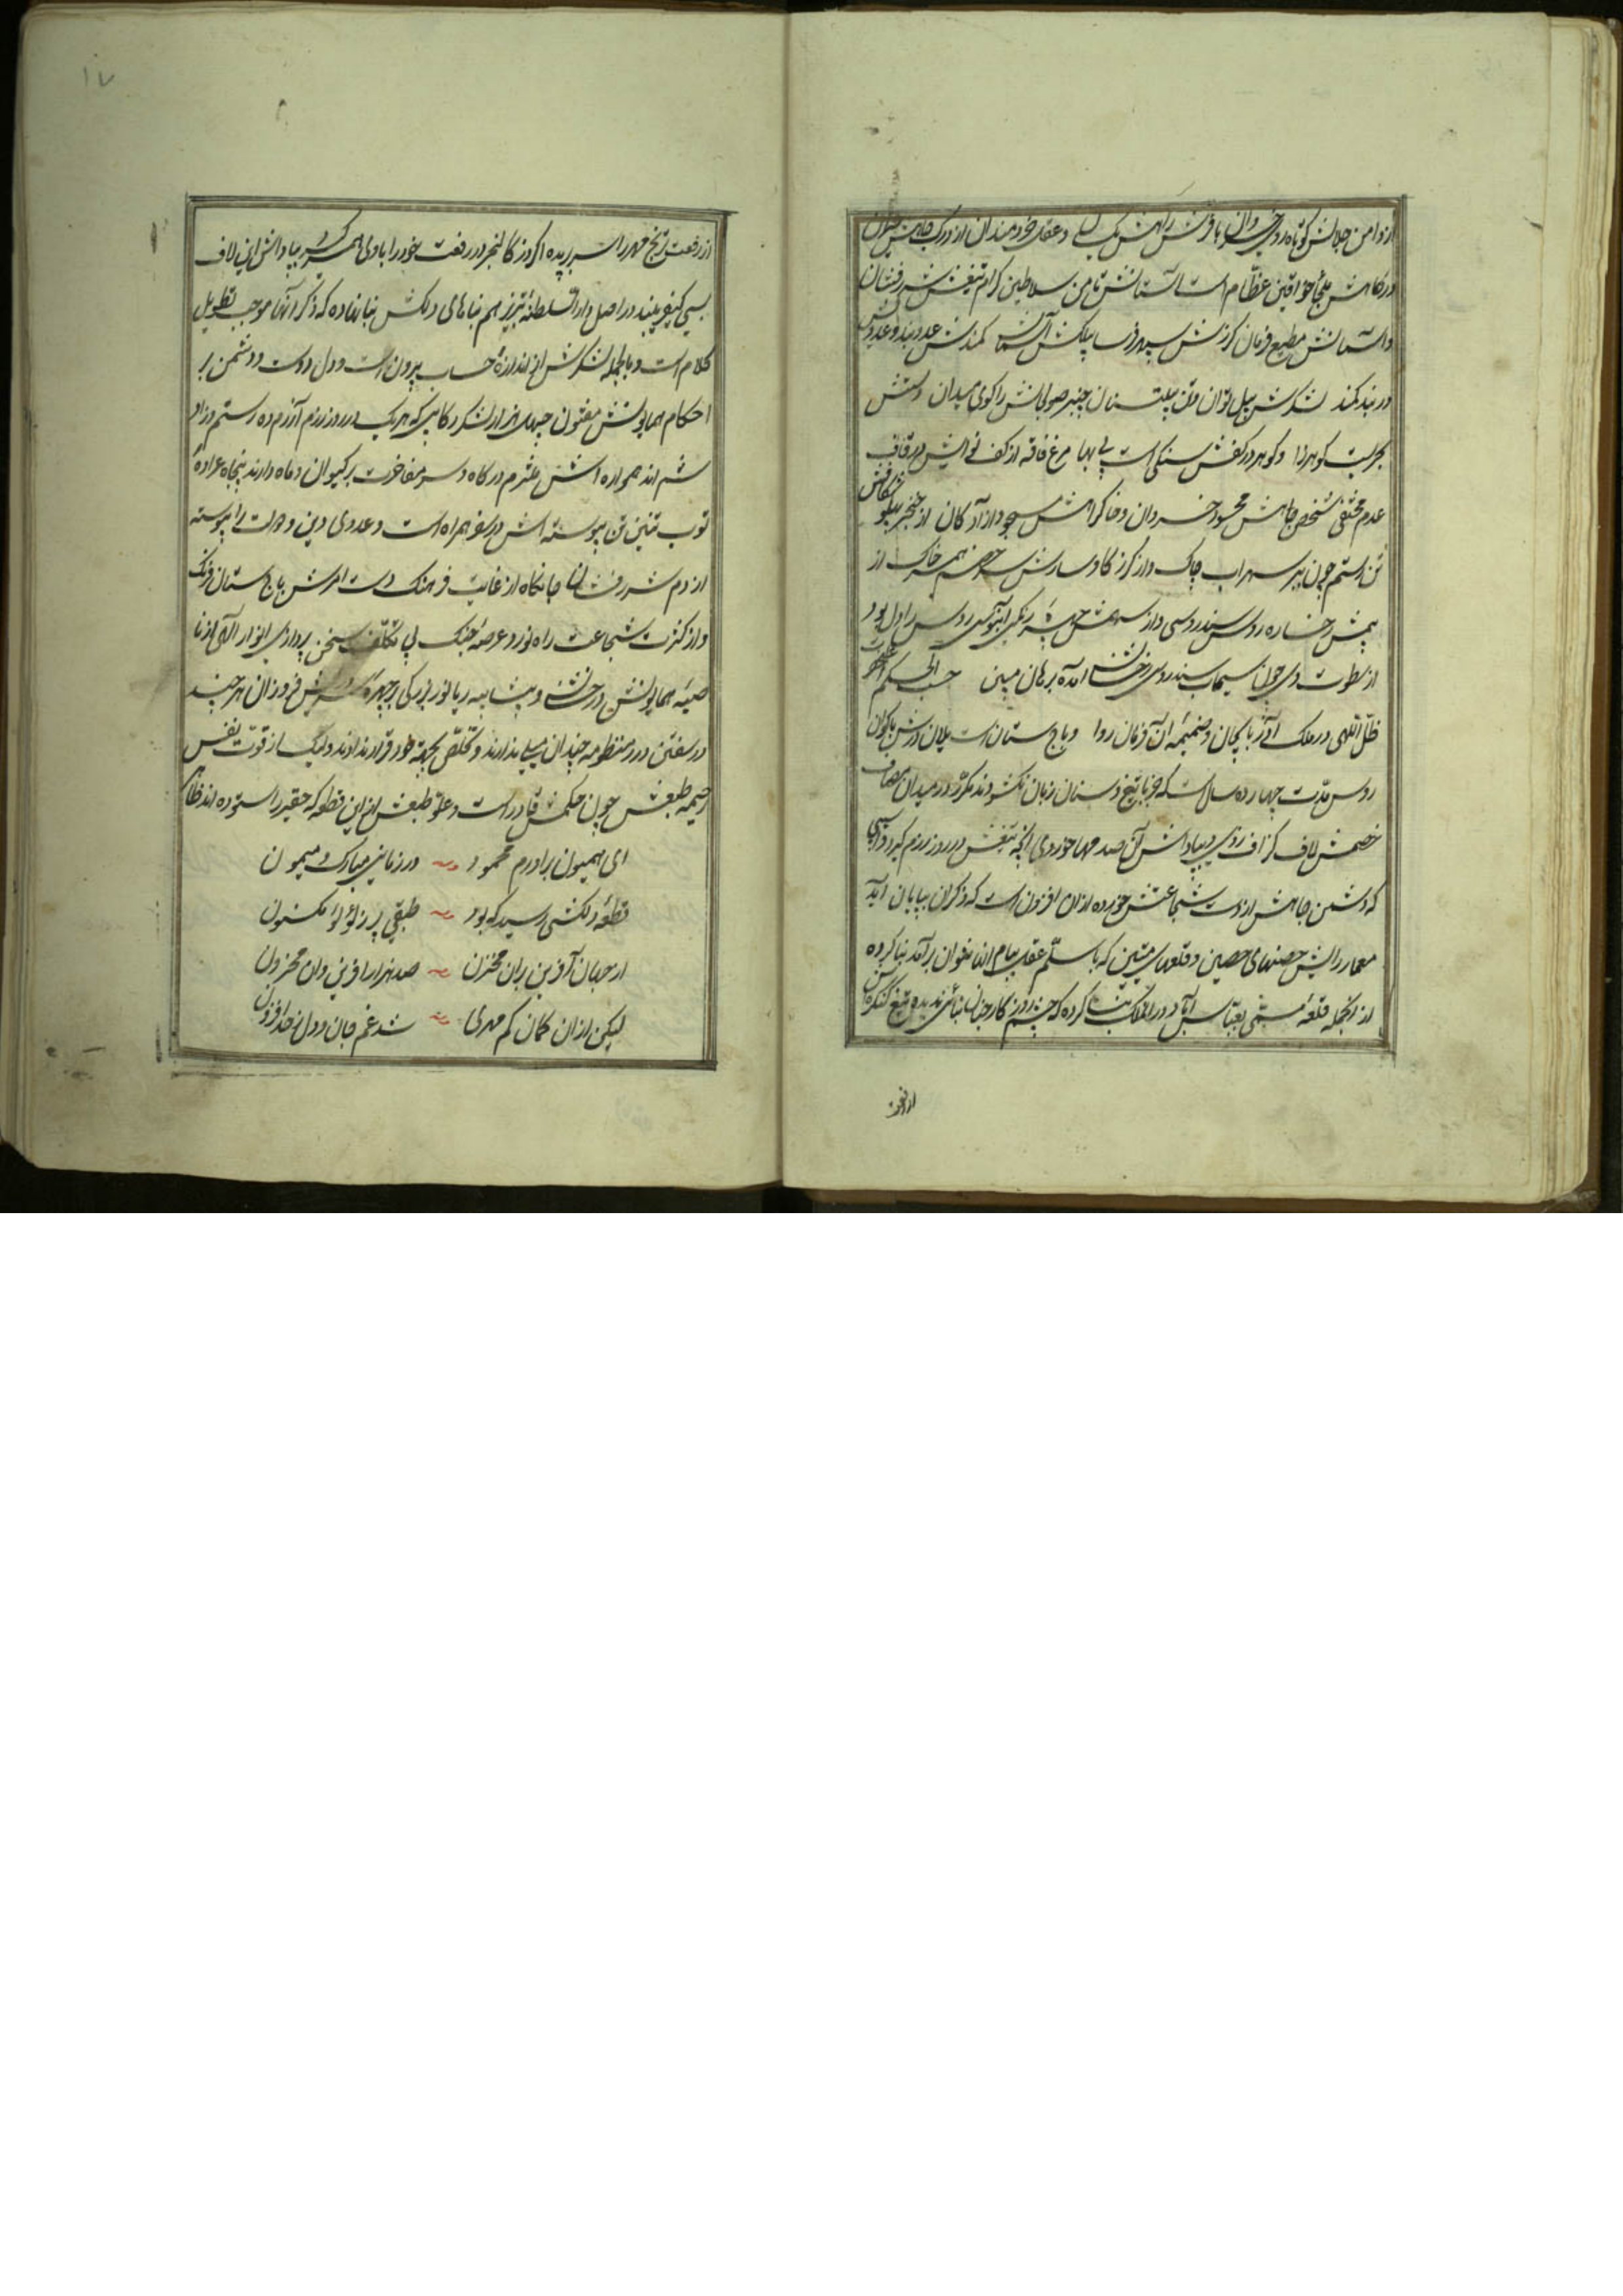 از دامن جلالش کوتاه روی خسروان با فرش راهش یکسان و عقل خردمندان از درک جاهش حیران
درگاهش ملجأ خواقین عظام است آستانش مأمن سلاطین کرام تیغش شررفشان
و آسمانش مطیع فرمان گرزش سپهرفرسا پیلکش کمندش عدوبند و عدویش
در بند کمند لشکرش پیل توان قلزم پیلتنان چنبر صولجانش را گوی میدان دستش
بحریست گوهرزا و گوهر در کفش سنگی است بی بها مرغ فاقه از کف نوالش در قاف
عدم مختفی شخص جاهش محسود خسروان و خاک راهش مسجود آزادگان از خنجر پهلو شکافش
تن رستم چون ببر سهراب چاک و از گرز گاوسارش سر خصم همسر خاک از
بیمش رخساره روس سندروسی و از سهمش چهره زنگی آبنوسی روس را دل بود
از سطوت وی چون سیماب سندروسی رخش آمده برهان مبین حسب الحکم اعلیحضرت
ظل اللهی در ملک آذربایجان و ضمیمه آن فرمان روا و باج ستان است یلان رزمش با گوان
روس مدت چهارده سال است که جز با تیغ و سنان زبان نگشودند مکرر در میدان مصاف
خصمش لاف گزاف زدی و بپاداش آن صدمها خوردی آنچه تیغش در روز رزم کرد و آسیبی
که دشمن جاهش از دست شجاعتش خورده از آن افزون است که ذکر آن بپایان آید
معمار رایش حصنهای حصین و قلعهای متین که با سلم عقل ببام آنها نتوان برآمد بنا کرده
از آنجمله قلعه مسمی بعباس آباد در بنا کرده که چشم روزگار چنان بنائی ندیده تیغ کنگره‌اش
از رفعت
از رفعت تیغ مهر را سر بریده اگر دژ کالنجر در رفعت خود را با وی همسر گیرد بپاداش این لاف
بسی کیفر بیند در اصل دارالسلطنه تبریز هم بناهای دلکش بنا نهاده که ذکر آنها موجب تطویل
کلام است و بالجمله لشکرش از اندازه حساب بیرون است و دل دوست و دشمن بر
احکام همایونش مفتون چهل هزار لشکر رکابی که هر یک در روز رزم آزرم ده رستم زاد
شم‌اند همواره‌اش ملتزم درگاه و سر مفاخرت بر کیوان و ماه دارند پنجاه عراده
توپ تنین تن پیوسته‌اش در سفر همراه است و عدوی دین و دولت را پیوسته
از دم شررفشان آنها جانکاه از غایت فرهنگ دست امرش باج ستان فرنگ
و از کثرت شجاعت راه نورد عرصه جنگ بی تکلف سخن پردازی انوار الهی از نا
صیه همایونش درخشنده و بیشائبه ریا نور بزرگی از چهره فروزان هر چند
در سفتن درر منظومه چندان میلی ندارند و تخلص بجهة خود قرار نداده‌اند ولیک از قوت نفس
رحیمه طبعش چون حکمش قادر است و علو طبعش از این قطعه که حقیر را ستوده‌اند ظاهر
ای همیون برادرم محمود در زمانی مبارک و میمون
قطعه دلکشی رسید که بود طبقی پر ز لؤلؤ مکنون
از جهان آفرین بران مخزن صد هزار آفرین بر آن مخزون
لیکن از آن گمان کم مهری شد غم جان و دل ز حد افزون
۱۷